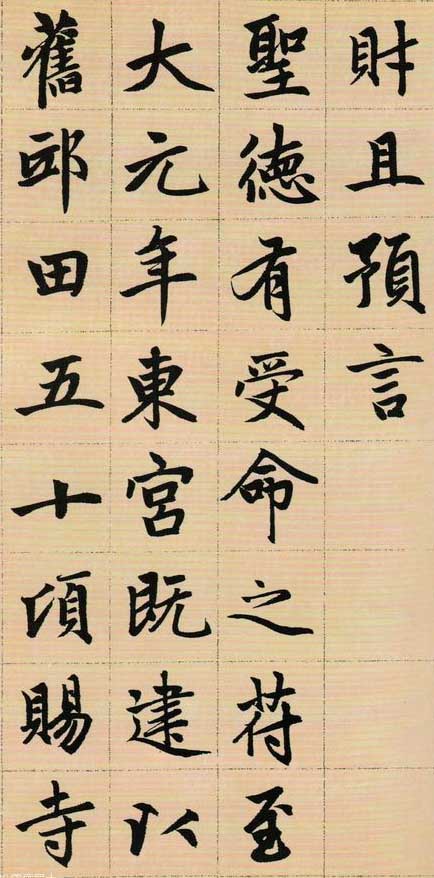 財且預言
聖德有受命之苻至
大元年東宮既建以
舊邸田五十頃賜寺